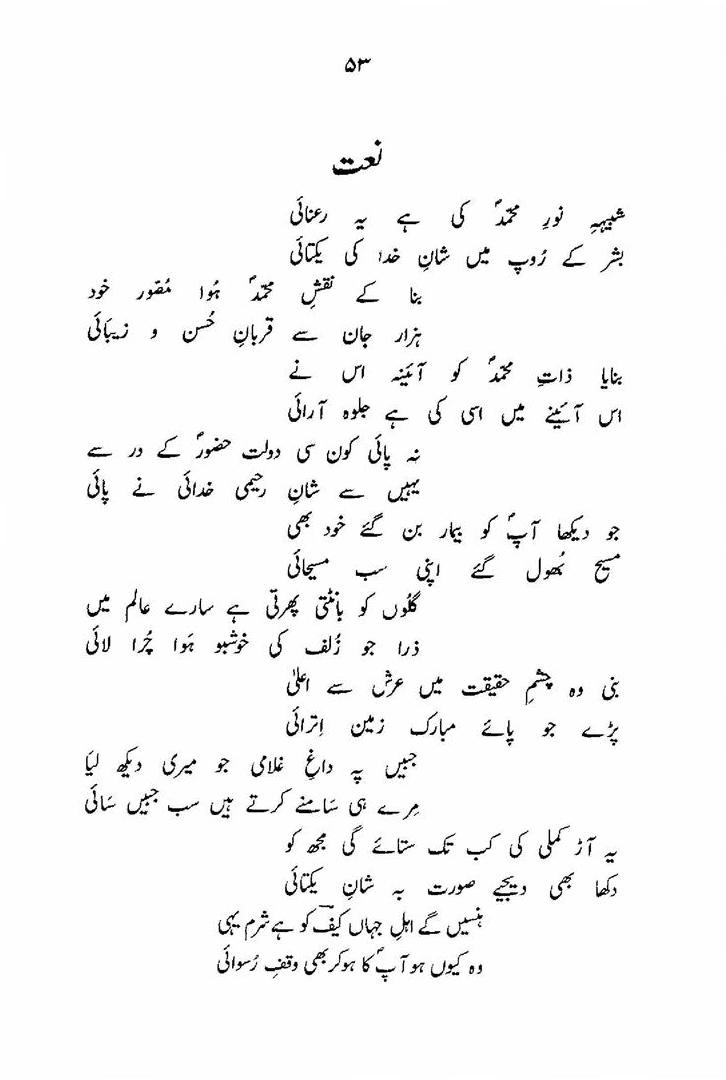 ۵۳
نعت
شبیہہِ نورِ محمّدؐ کی ہے یہ رعنائی
بشر کے رُوپ میں شانِ خدا کی یکتائی
بنا کے نقشِ محمّدؐ ہُوا مُصّور خود
ہزار جان سے قربانِ حُسن و زیبَائی
بنایا ذاتِ محمّدؐ کو آئینہ اس نے
اس آئینے میں اسی کی ہے جلوہ آرائی
نہ پائی کون سی دولت حضورؐ کے در سے
یہیں سے شانِ رحیمی خدائی نے پائی
جو دیکھا آپؐ کو بیمار بن گئے خود بھی
مسیح بُھول گئے اپنی سب مسیحائی
گُلوں کو بانٹتی پھرتی ہے سارے عالم میں
ذرا جو زُلف کی خوشبو ہَوا چُرا لائی
بنی وہ چشمِ حقیقت میں عرش سے اعلیٰ
پڑے جو پائے مبارک زمین اِترائی
جبیں پہ داغِ غلامی جو میری دیکھ لیَا
مِرے ہی سَامنے کرتے ہیں سب جبیں سَائی
یہ آڑ کملی کی کب تک ستائے گی مجھ کو
دکھا بھی دیجیے صورت بہ شانِ یکتائی
ہنسیں گے اہلِ جہاں کیفؔ کو ہے شرم یہی
وہ کیوں ہو آپؐ کا ہو کر بھی وقفِ رُسوائی